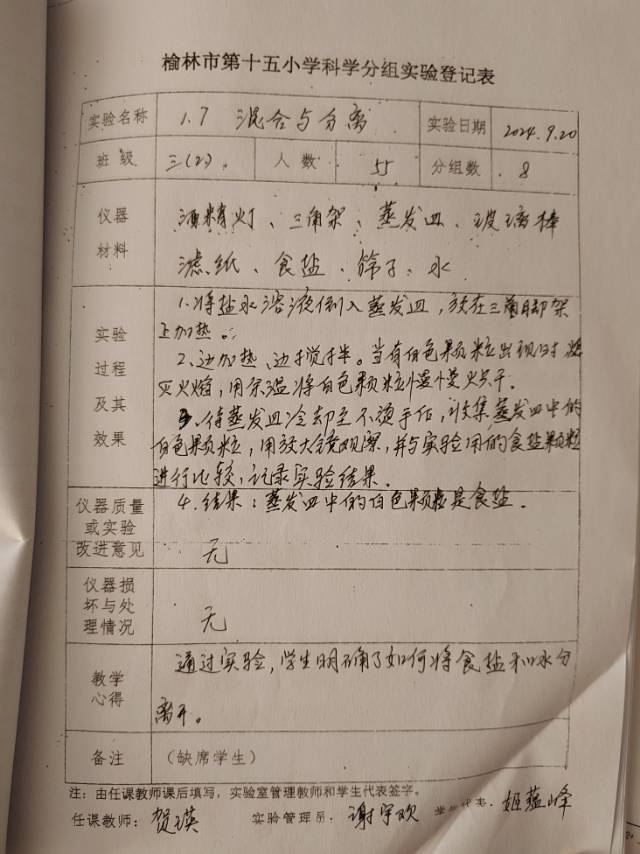 榆林市第十五小学科学分组实验登记表
实验名称 1.7 混合与分离 实验日期 2024.9.20
班级 三(2). 人数 55 分组数 8
仪器 酒精灯、三角架、蒸发皿、玻璃棒
材料 滤纸、食盐、筛子、水
1.将盐水溶液倒入蒸发皿,放在三角脚架
实验 上加热。
过程 2、边加热、边搅拌。当有白色颗粒出现时
及其 灭火焰,用余温将白色颗粒慢慢烘干。
效果 3.待蒸发皿冷却至不烫手后,收集蒸发皿中的
白色颗粒,用放大镜观察,并与实验用的食盐颗粒
进行比较,记录实验结果。
仪器质量 4.结果:蒸发皿中的白色颗粒是食盐.
或实验
改进意见 无
仪器损
坏与处
理情况 无
教学 通过实验,学生明确了如何将食盐和水分
心得 离开。
备注 (缺席学生)
注:由任课教师课后填写,实验室管理教师和学生代表签字。
任课教师:贺瑛 实验管理员:谢宇欢 学生代表:姬蕴峰